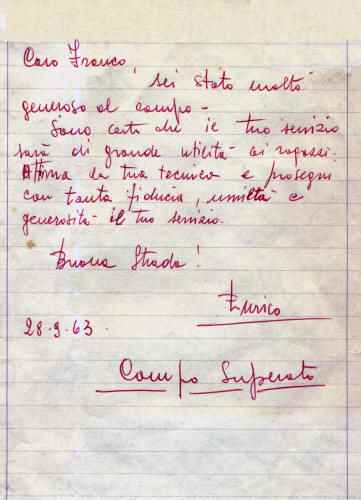 Caro Franco,
sei stato molto
generoso al campo -
Sono certo che il tuo servizio
sarà di grande utilità ai ragazzi.
Affina la tua tecnica e prosegui
con tanta fiducia, umiltà e
generosità il tuo servizio.
Buona Strada!
Enrico
28.9.63
Campo Superato